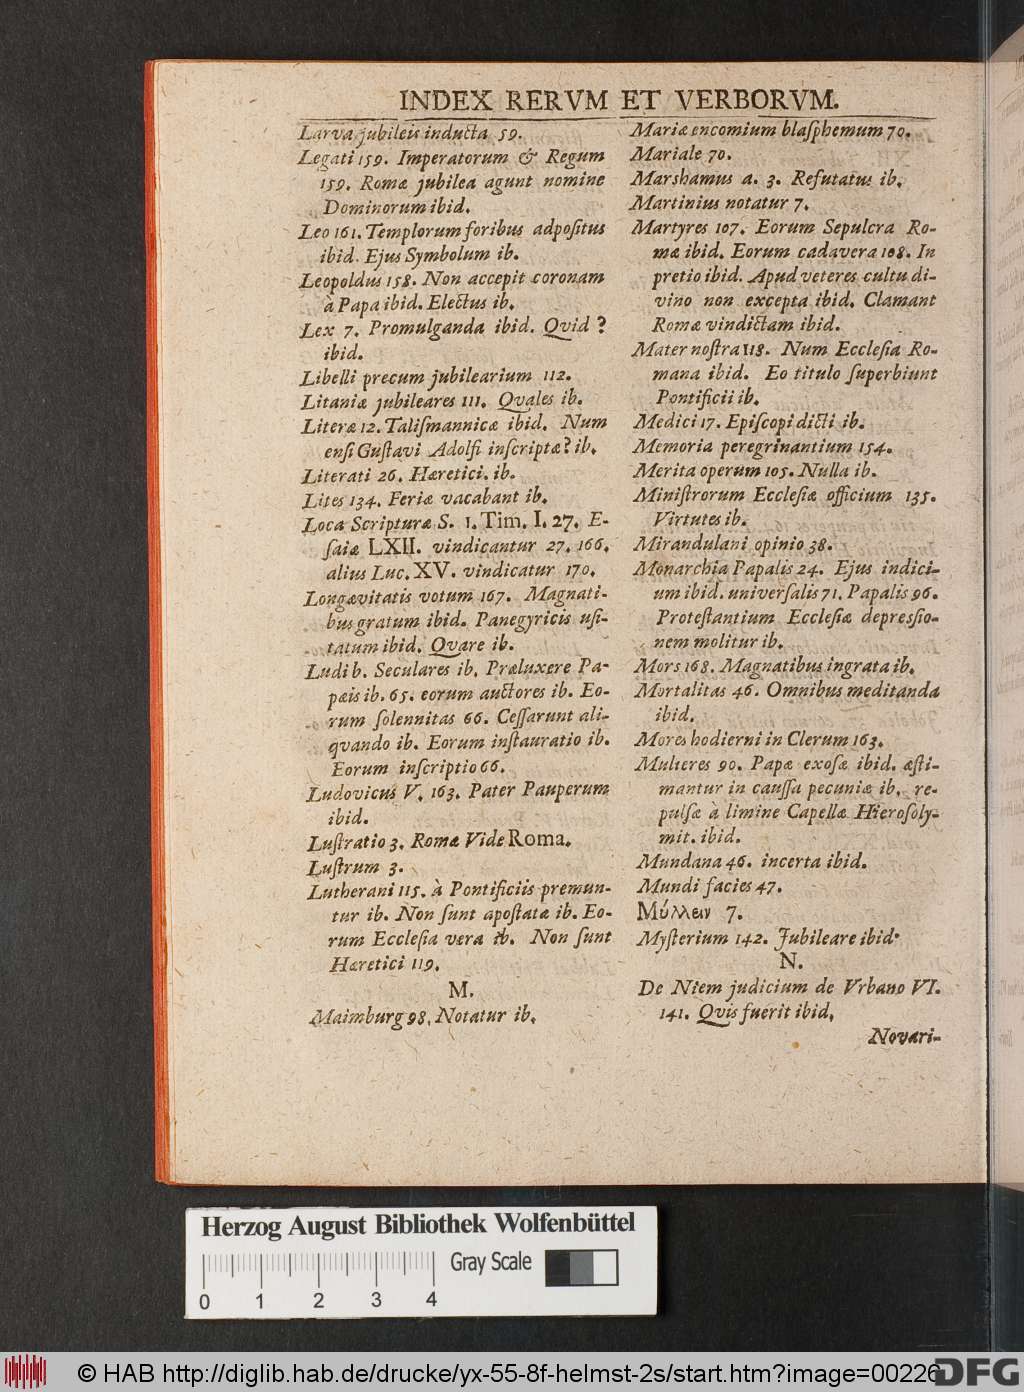 INDEX RERVM ET VERBORVM.
Larva jubileis inducta 59.
Legati 159. Imperatorum & Regum
159. Romæ jubilea agunt nomine
Dominorum ibid.
Leo 161. Templorum foribus adpoſitus
ibid. Ejus Symbolum ib.
Leopoldus 158. Non accepit coronam
à Papa ibid. Electus ib.
Lex 7. Promulganda ibid. Qvid?
ibid.
Libelli precum jubilearium 112.
Litaniæ jubileares 111. Qvales ib.
Literæ 12. Taliſmannicæ ibid. Num
enſi Guſtavi Adolfi inſcriptæ? ib.
Literati 26. Hæretici. ib.
Lites 134. Feriæ vacabant ib.
Loca Scripturæ S. 1. Tim. I. 27. E-
ſaiæ LXII. vindicantur 27. 166.
alius Luc. XV. vindicatur 170.
Longævitatis votum 167. Magnati-
bus gratum ibid. Panegyricis uſi-
tatum ibid. Qvare ib.
Ludi b. Seculares ib. Præluxere Pa-
pæis ib. 65. eorum auctores ib. Eo-
rum ſolennitas 66. Ceſſarunt ali-
qvando ib. Eorum inſtauratio ib.
Eorum inſcriptio 66.
Ludovicus V. 163. Pater Pauperum
ibid.
Luſtratio 3. Romæ Vide Roma.
Luſtrum 3.
Lutherani 115. à Pontificiis premun-
tur ib. Non ſunt apoſtatæ ib. Eo-
rum Eccleſia vera ib. Non ſunt
Hæretici 119.
M.
Maimburg 98. Notatur ib.
Mariæ encomium blaſphemum 70.
Mariale 70.
Marshamus a. 3. Refutatus ib.
Martinius notatur 7.
Martyres 107. Eorum Sepulcra Ro-
mæ ibid. Eorum cadavera 108. In
pretio ibid. Apud veteres cultu di-
vino non excepta ibid. Clamant
Romæ vindictam ibid.
Mater noſtra 118. Num Eccleſia Ro-
mana ibid. Eo titulo ſuperbiunt
Pontificii ib.
Medici 17. Epiſcopi dicti ib.
Memoria peregrinantium 154.
Merita operum 105. Nulla ib.
Miniſtrorum Eccleſiæ officium 135.
Virtutes ib.
Mirandulani opinio 38.
Monarchia Papalis 24. Ejus indici-
um ibid. univerſalis 71. Papalis 96.
Proteſtantium Eccleſiæ depreſſio-
nem molitur ib.
Mors 168. Magnatibus ingrata ib.
Mortalitas 46. Omnibus meditanda
ibid.
Mores hodierni in Clerum 163.
Mulieres 90. Papæ exoſæ ibid. æſti-
mantur in cauſſa pecuniæ ib. re-
pulſæ à limine Capellæ Hieroſoly-
mit. ibid.
Mundana 46. incerta ibid.
Mundi facies 47.
Μύλλειν 7.
Myſterium 142. Jubileare ibid.
N.
De Niem judicium de Vrbano VI.
141. Qvis fuerit ibid.
Novari-
Herzog August Bibliothek Wolfenbüttel
Gray Scale
0 1 2 3 4
© HAB http://diglib.hab.de/drucke/yx-55-8f-helmst-2s/start.htm?image=00226
DFG